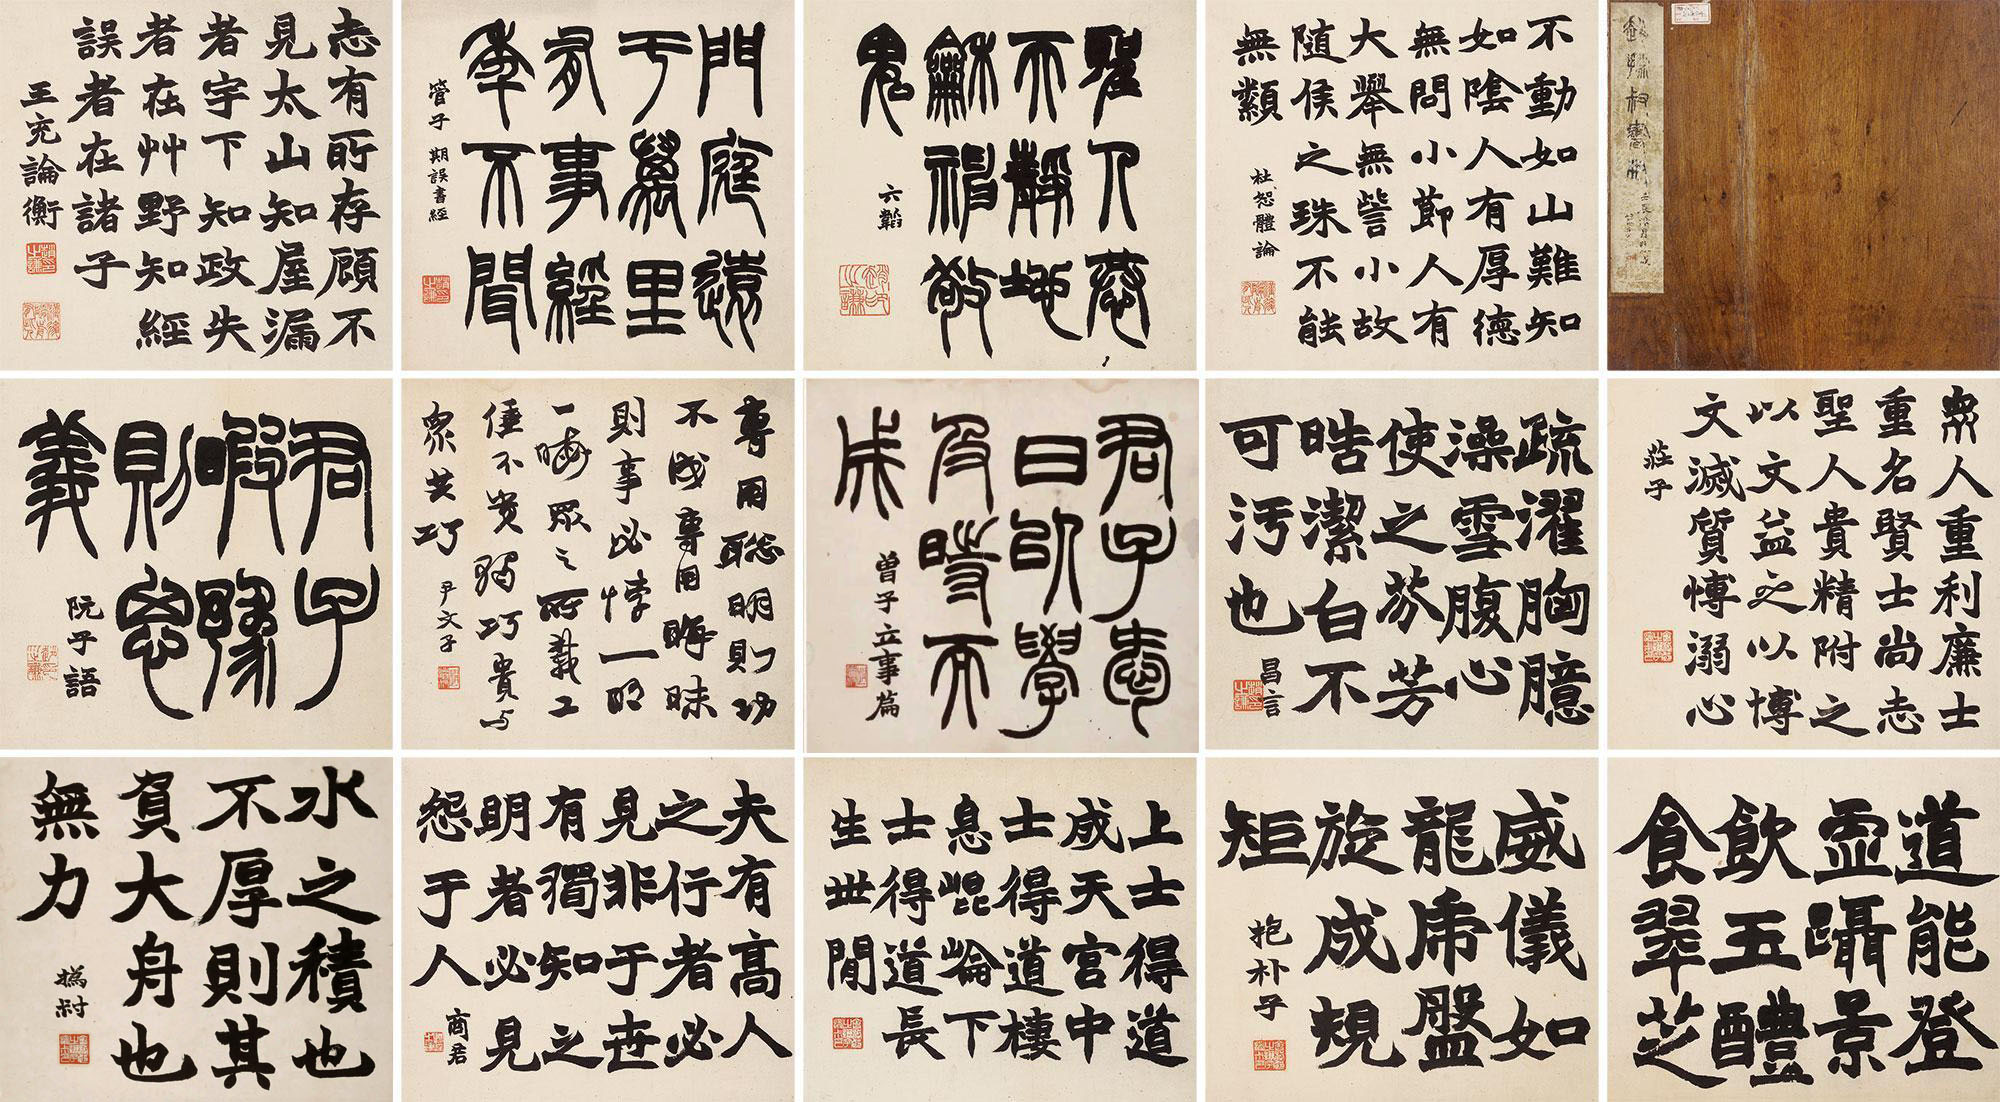 趙撝叔書冊
不動如山難知
如陰人有厚德
無問小節人有
大舉無訾小故
隨侯之珠不能
無纇
杜恕體論
聖人慈
天靜地
龢神敬
鬼
六韜
門庭遠
于萬里
有事經
年不聞
管子 期誤書經
志有所存顧不
見太山知屋漏
者宇下知政失
者在艸野知經
誤者在諸子
王充論衡
眾人重利廉士
重名賢士尚志
聖人貴精附之
以文益之以博
文滅質博溺心
莊子
疏濯胸臆
澡雪腹心
使之芬芳
皓潔白不
可污也
昌言
君子愛
日以學
及時而
成
曾子立事篇
專用聰明則功
不成專用晦昧
則事必悖一明
一晦眾之所載工
倕不貴獨巧貴與
眾共巧
尹文子
君子
暇豫
則思
義
阮子語
道能登
虛躡景
飲五醴
食翠芝
威儀如
龍虎盤
旋成規
矩
抱朴子
上士得道
成天宮中
士得道棲
息崑崙下
士得道長
生世間
夫有高人
之行者必
見非于世
有獨知之
明者必見
怨于人
商君
水之積也
不厚則其
負大舟也
無力
撝叔